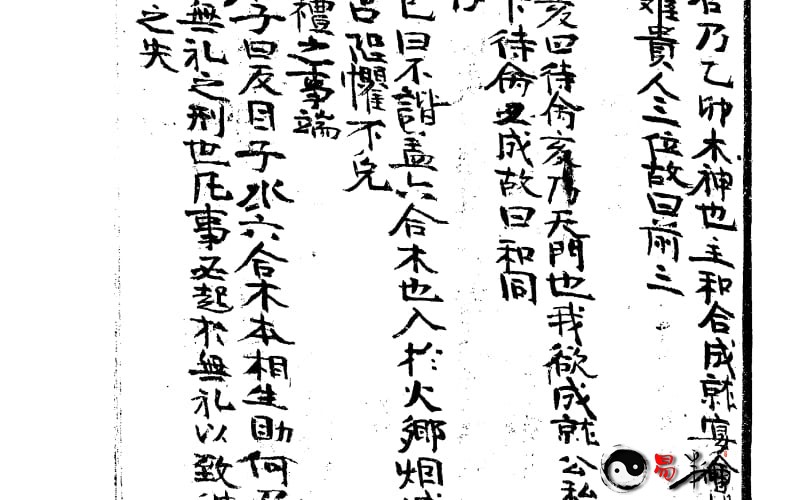 乃乙卯木神也主和合成就宴會
難貴人三位故曰前三
亥曰待命亥乃天門也我欲成就公私
下待命又成故曰和同
巳曰不諧蓋六合木也入於火鄉烟
占恐懼不免
禮之事端
子曰反目子水六合木本相生助何
無礼之刑也凡事必起於無礼以致
之失
易